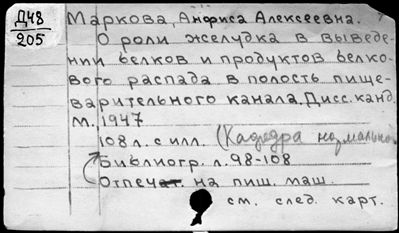 Д48
205
Маркова, Анфиса Алексеевна.
О роли желудка в выведе-
нии белков и продуктов белко-
вого распада в полость пище-
варительного канала. Дисс. канд.
М., 1947
108 л. с илл. (Кафедра нормально
Библиогр. л. 98-108
Отпечат. на пиш. маш.
см. след. карт.